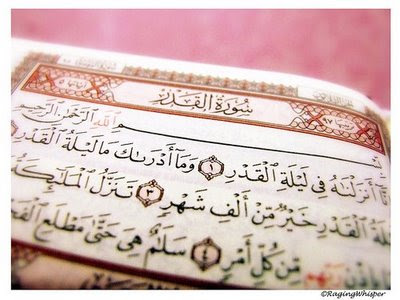 سُورَةُ القَدْرِ
بِسْمِ اللَّهِ الرَّحْمَٰنِ الرَّحِيمِ
أَنزَلْنَٰهُ فِى لَيْلَةِ ٱلْقَدْرِ ١ وَمَآ أَدْرَىٰكَ مَا لَيْلَةُ ٱلْقَدْرِ
ٱلْقَدْرِ خَيْرٌ مِّنْ أَلْفِ شَهْرٍ ٣ تَنَزَّلُ ٱلْمَلَٰٓئِكَةُ
مِّن كُلِّ أَمْرٍ ٤ سَلَٰمٌ هِىَ حَتَّىٰ مَطْلَعِ
©RagingWhisper